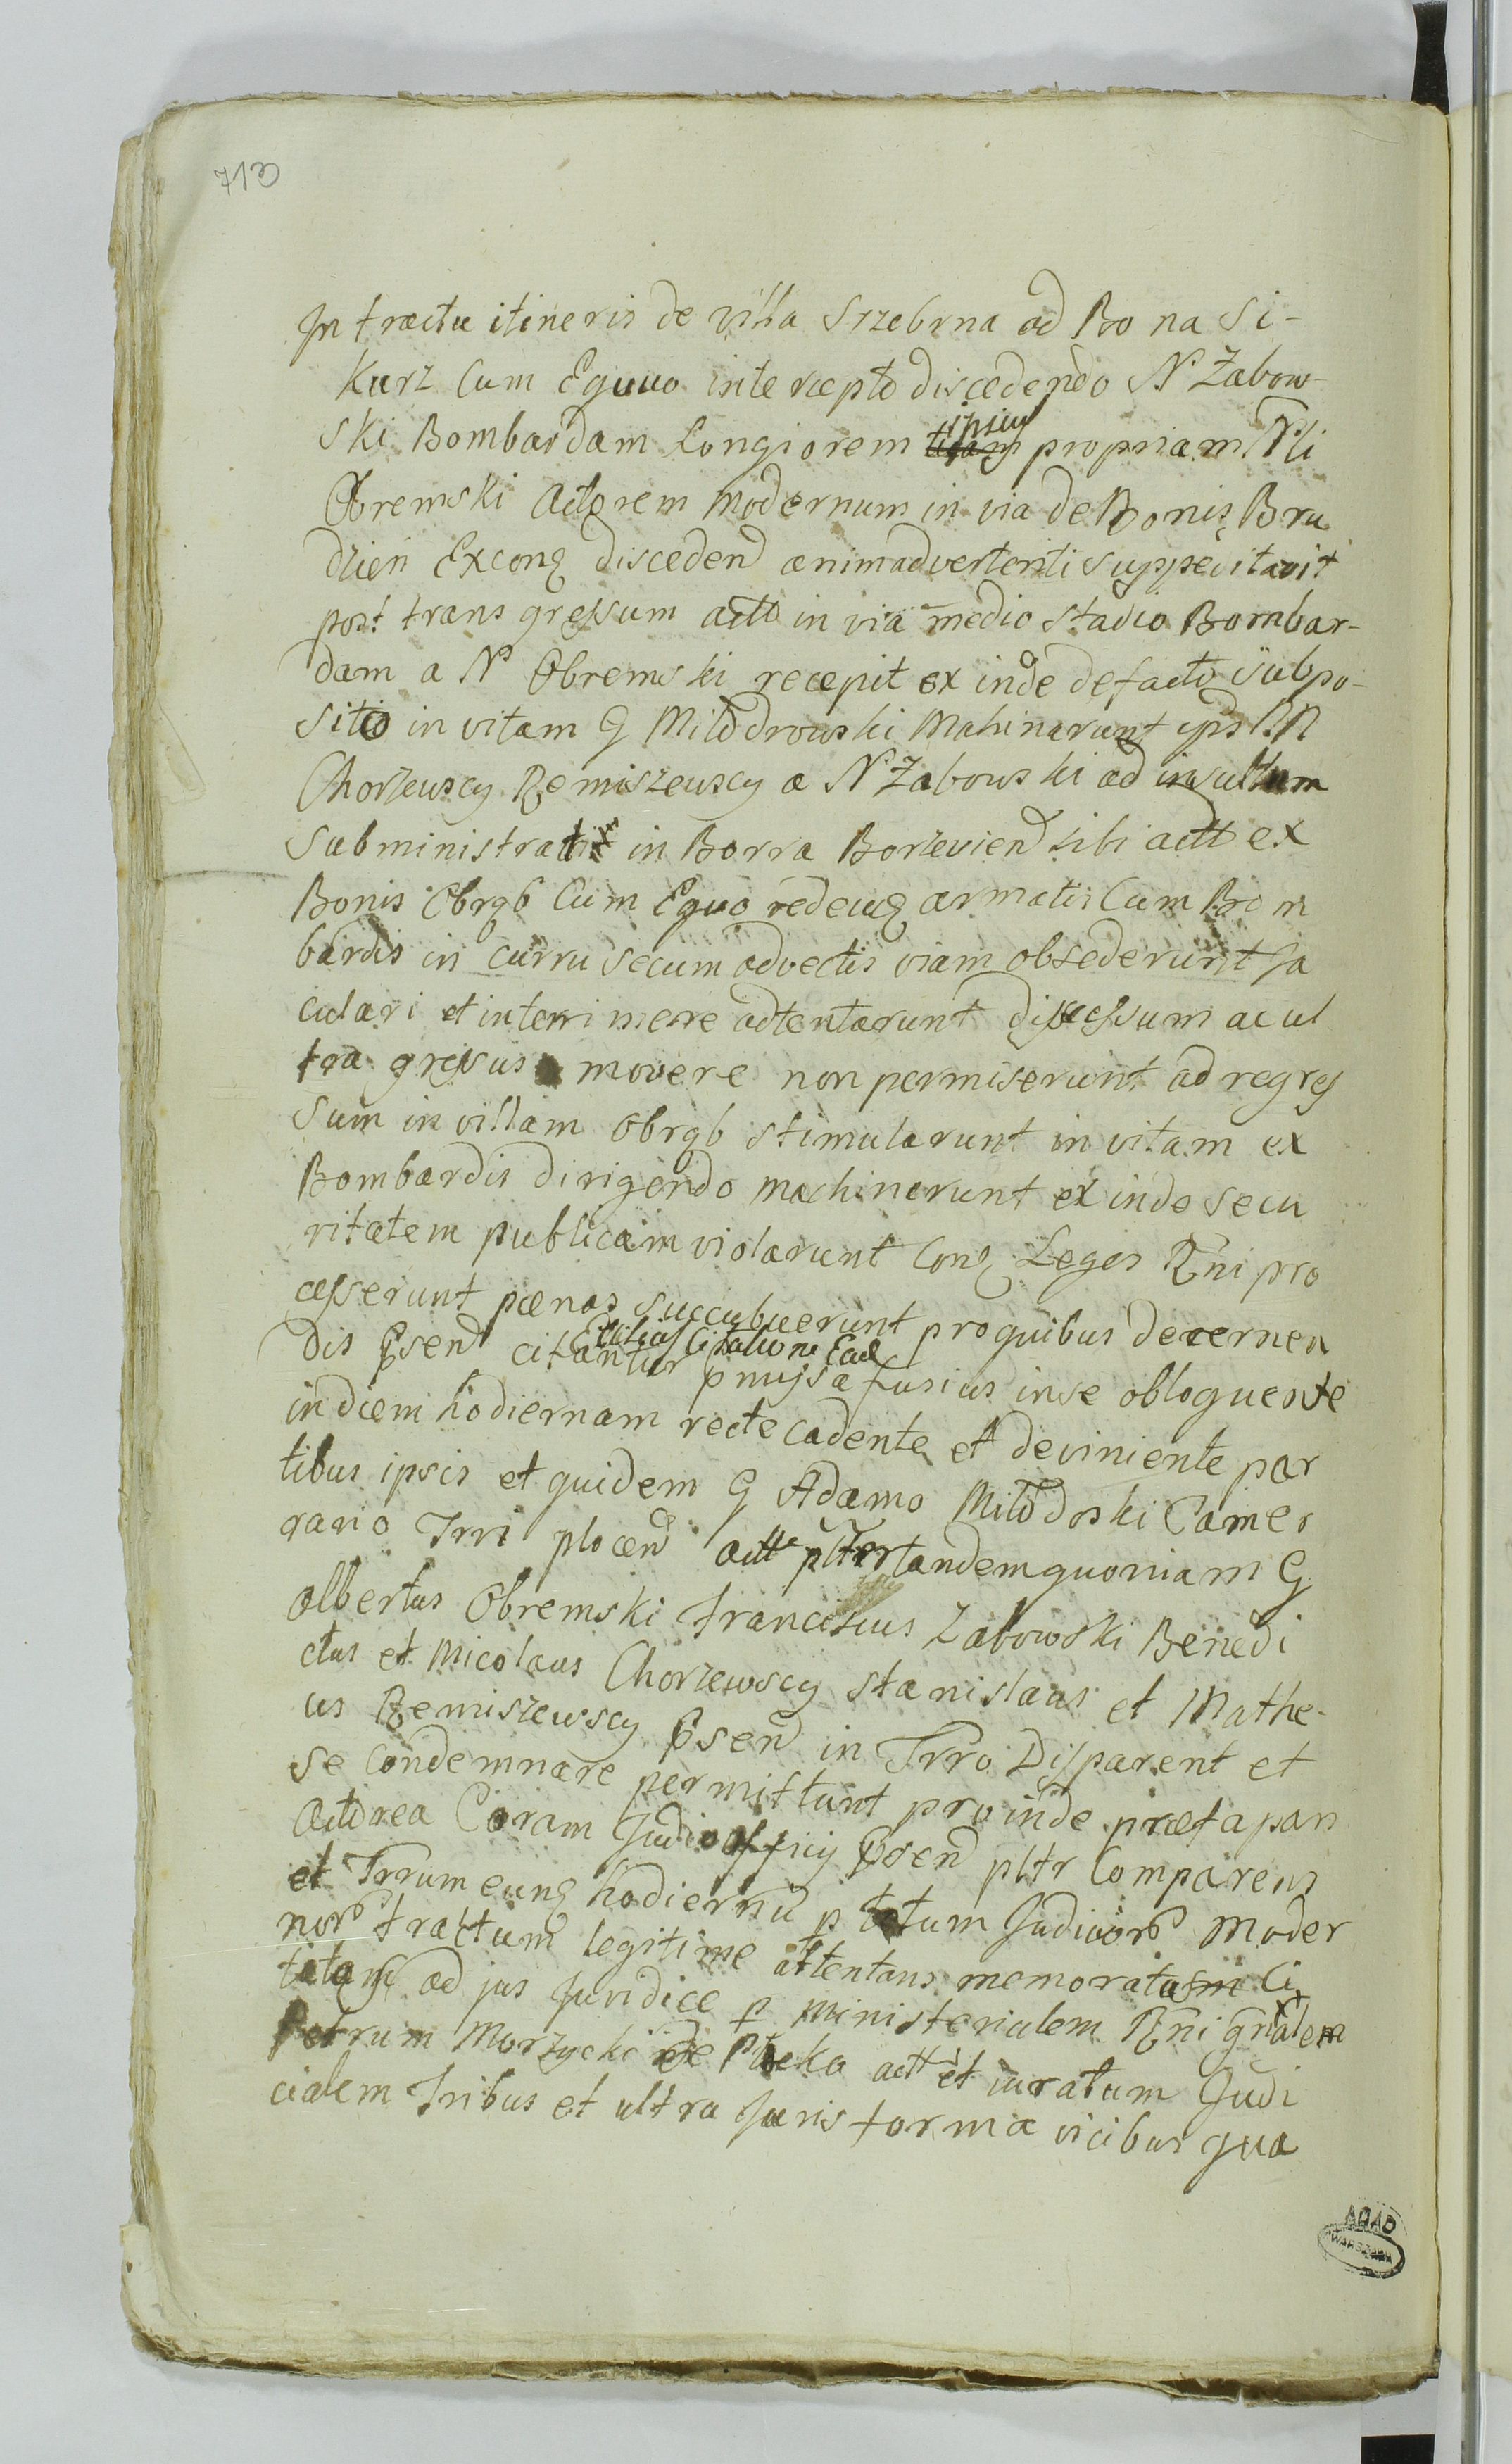 713
In tractu itineris de villa Srzebrna ad Bona Si-
Kurz Cum Equuo intercepto discedendo N Zabow-
ski Bombardam Longiorem ipsius propriam Nli
Obremski Actorem modernum in via de Bonis Bru
dzien Excong disceden animadvertenti suppeditavit
post transgressum actt in via medio stadio Bombar-
dam a N Obremski recepit ex inde defacto subpo-
sito in vitam G Miłodrowski Mahinarunt ips NN
Chorzewscy Remiszewscy a N Zabowski ad insultum
subministratis in Borra Borzevien sibi actt ex
Bonis Obrąb Cum Equo redeung armatis Cum Bom
bardis in curru secum advectis viam obsederunt Ja
culari et interimere adtentarunt discessum ac ul
tra gressus movere non permiserunt ad regres
sum in villam Obrąb stimularunt in vitam ex
Bombardis dirigendo machinarunt ex inde secu
ritatem publicam violarunt Cong Leges Rni pro
cesserunt pænas succubuerunt pro quibus decernen
Citatione Ead
dis Psen citantur pmissa fusius in se obloquente
in diem hodiernam recte cadente et deviniente par
tibus ipsis et quidem G Adamo Miłodrski Camer
rario Trri plocen actt pltr tandem quoniam G
Albertus Obremski Franciscus Zabowski Benedi
ctus et Nicolaus Chorzewscy Stanislaus et Mathe-
us Remiszewscy Psen in Trro Disparent et
se Condemnare permittunt proinde præfa pars
Actorea Coram Judio Officij Psen pltr Comparens
et Trrum eung hodiernu p totum Judicior moder
nor tractum legitime attentans memoratas Ci
tatas ad jus Juridice p Ministerialem Rni gnalem
Petrum Morzycki de Płocko actt et juratum Judi
cialem Tribus et ultra Juris forma vicibus qua
AGAD
WARSZAWA